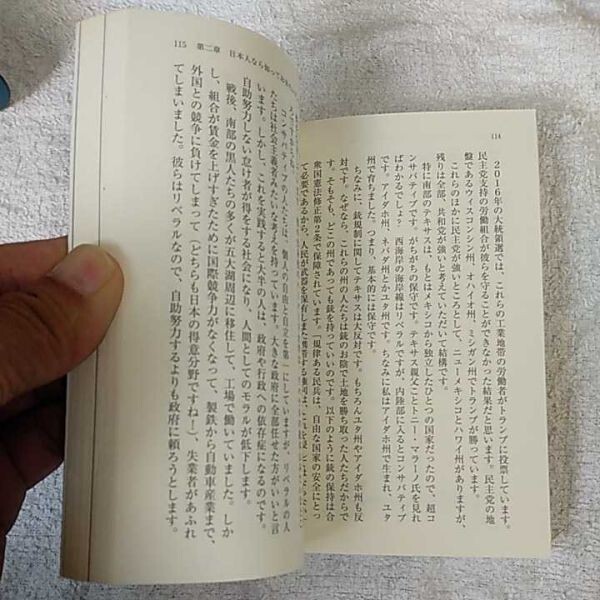 114
2016年の大統領選では、これらの工業地帯の労働者がトランプに投票しています。
民主党支持の労働組合が彼らを守ることができなかった結果だと思います。民主党の地
盤であるウィスコンシン州、オハイオ州、ミシガン州でトランプが勝っています。
これらのほかに民主党が強いところとして、ニューメキシコとハワイ州がありますが、
残りは全部、共和党が強いと考えていただいて結構です。
特に南部のテキサスは、もとはメキシコから独立したひとつの国家だったので、超コ
ンサバティブです。がちがちの保守です。テキサス親父ことトニー・マラーノ氏を見れ
ばわかるでしょ? 西海岸の海岸線はリベラルですが、内陸部に入るとコンサバティブ
です。アイダホ州、ネバダ州とかユタ州です。ちなみに私はアイダホ州で生まれ、ユタ
州で育ちました。つまり、基本的には保守です。
ちなみに、銃規制に関してテキサスは大反対です。もちろんユタ州やアイダホ州も反
対です。なぜなら、これらの州の人たちは銃のお陰で土地を勝ち取った人たちだからで
す。そもそも、どこの州であっても銃を持っていいのです。以下のように銃の保持は合
衆国憲法修正第2条で保障されています。「規律ある民兵は、自由な国家の安全にとっ
て必要であるから、人民が武器を保有しまた携帯する権利は、これを侵
115 第二章 日本人なら知ってお
コンサバティブの人たちは、個人の自由と自立を第一にしていますが、リベラルの人
たちは社会主義者みたいな考えを持っています。大きな政府に全部任せた方がいいと言
います。しかし、これを実践すると大半の人は、政府や行政への依存症になるのです。
自助努力しない怠け者が得をする社会になり、人間としてのモラルが低下します。
戦後、南部の黒人たちの多くが五大湖周辺に移住して、工場で働いていました。しか
し、組合が賃金を上げすぎたために国際競争力がなくなって、製鉄から自動車産業まで、
外国との競争に負けてしまって(どちらも日本の得意分野ですね!)、失業者があふれ
てしまいました。彼らはリベラルなので、自助努力するよりも政府に頼ろうとします。